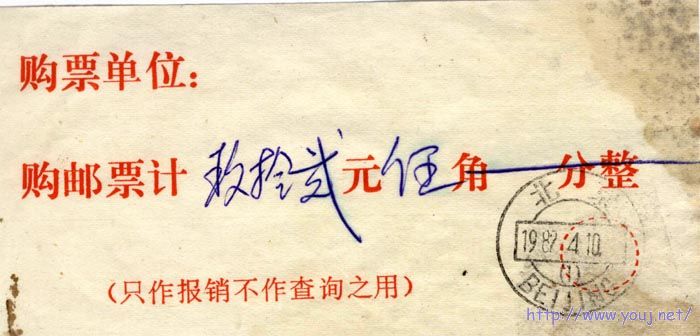 购票单位：
购邮票计 玖拾贰 元 伍 角 分整
北京
1987.4.10.
(1)
BEIJING
（只作报销不作查询之用）
http://www.youj.net/